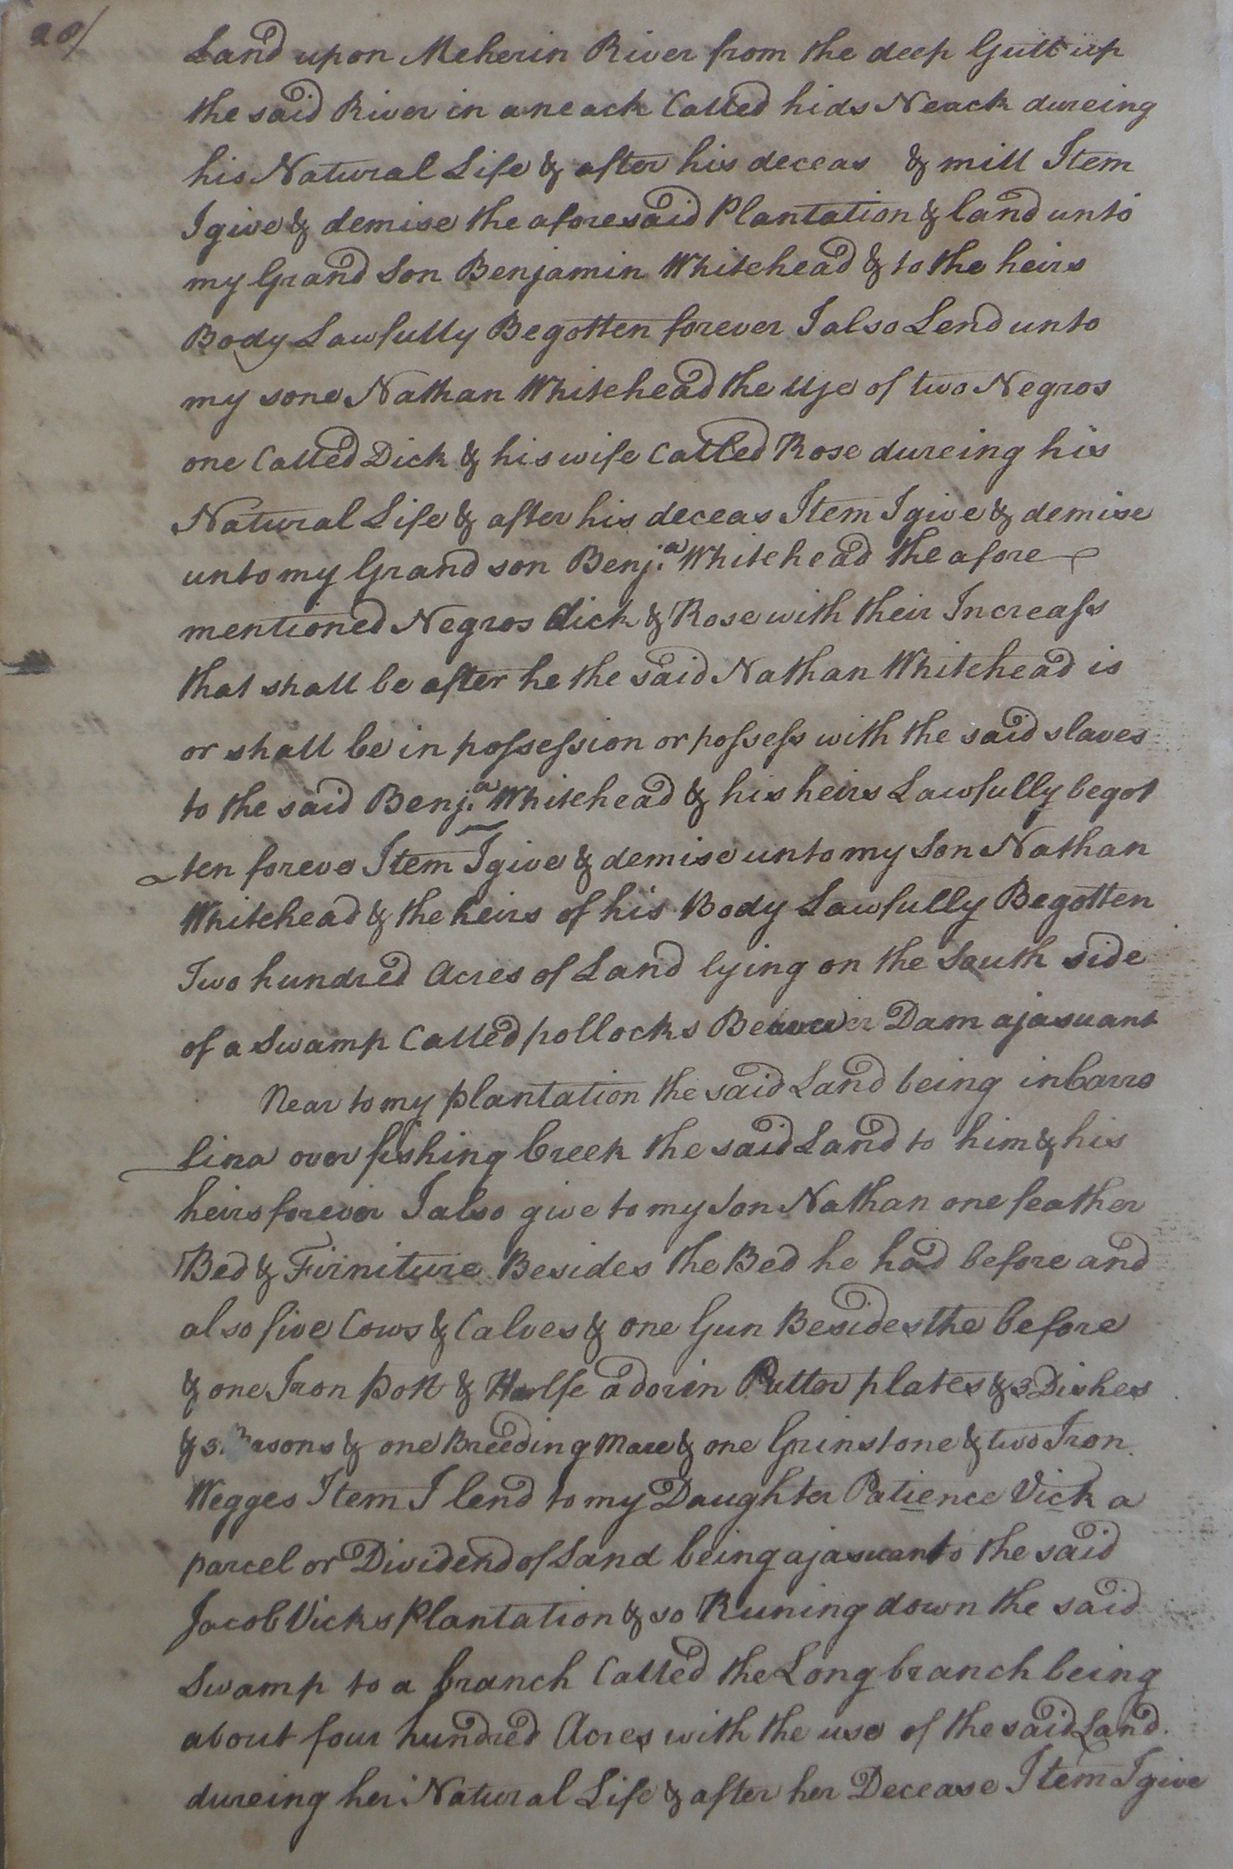 28/
Land upon Meherin River from the deep Gutt up
the said River in a neack Called hids Neack dureing
his Natural Life & after his deceas & mill Item
I give & demise the aforesaid Plantation & land unto
my Grand Son Benjamin Whitehead & to the heirs
Body Lawfully Begotten forever I also Lend unto
my sone Nathan Whitehead the Use of two Negros
one Called Dick & his wife Called Rose dureing his
Natural Life & after his deceas Item I give & demise
unto my Grand son Benj:a Whitehead the afore
mentioned Negros dick & Rose with their Increass
that shall be after he the said Nathan Whitehead is
or shall be in possession or possess with the said slaves
to the said Benj:a Whitehead & his heirs Lawfully begot
ten foreve Item I give & demise unto my Son Nathan
Whitehead & the heirs of his Body Lawfully Begotten
Two hundred Acres of Land lying on the South side
of a Swamp Called pollocks Beaver Dam ajasuant
Near to my plantation the said Land being in Carro
lina over fishing Creek the said Land to him & his
heirs forever I also give to my Son Nathan one feather
Bed & Firniture Besides the Bed he had before and
also five Cows & Calves & one Gun Besides the before
& one Iron pott & Halfe a dorin Putter plates & 3 Dishes
& 3 Basons & one Breeding Mare & one Grinstone & two Iron
Wegges Item I lend to my Daughter Patience Vick a
parcel or Dividend of Land being ajasuant to the said
Jacob Vicks Plantation & so Runing down the said
Swamp to a branch Called the Long branch being
about four hundred Acres with the use of the said Land
dureing her Natural Life & after her Decease Item I give